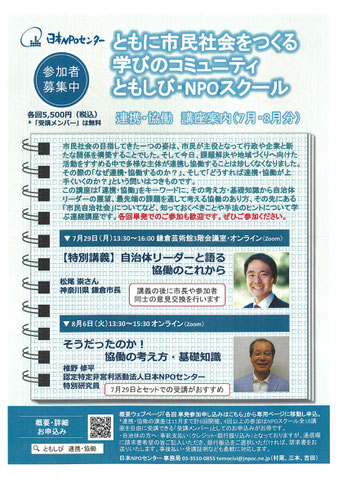 日本NPOセンター
ともに市民社会をつくる
学びのコミュニティ
ともしび・NPOスクール
参加者
募集中
各回5,500円（税込）
*「受講メンバー」は無料
連携・協働 講座案内（7月・8月分）
市民社会の目指してきた一つの姿は、市民が主役となって行政や企業と新
たな関係を構築することでした。そして今日、課題解決や地域づくりへ向けた
活動をすすめる中で多様な主体が連携し協働することは珍しくなくなりました。
その際の「なぜ連携・協働するのか？」、そして「どうすれば連携・協働が上
手くいくのか？」という問いはつきものです。
この講座は「連携・協働」をキーワードに、その考え方・基礎知識から自治体
リーダーの展望、最先端の課題を通して考える協働のあり方、その先にある
「市民自治社会」についてなど、知っておくべきことや手法のヒントについて学
ぶ連続講座です。各回単発でのご参加も歓迎です。ぜひご参加ください。
▼7月29日（月）13:30～16:00 鎌倉芸術館3階会議室・オンライン（Zoom）
【特別講義】自治体リーダーと語る
協働のこれから
松尾 崇さん
神奈川県 鎌倉市長
講義の後に市長や参加者
同士の意見交換を行います
▼8月6日（火）13:30～15:30 オンライン（Zoom）
そうだったのか！
協働の考え方・基礎知識
椎野 修平
認定特定非営利活動法人日本NPOセンター
特別研究員
7月29日とセットでの受講がおすすめ
概要・詳細
お申込み
ともしび 連携・協働
概要ウェブページ「各回 単発参加申し込みはこちら」から専用ページに移動し申込。
日本NPOセンター事務局 03-3510-0855